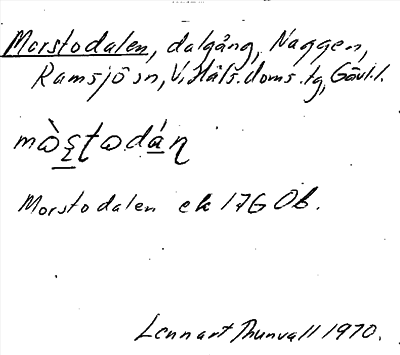 Morstodalen, dalgång, Naggen,
Ramsjö sn, V. Häls. doms. tg, Gävl. l.
mò̀ʂʈodáɳ
Morstodalen ek 17G Ob.
Lennart Thunvall 1970.